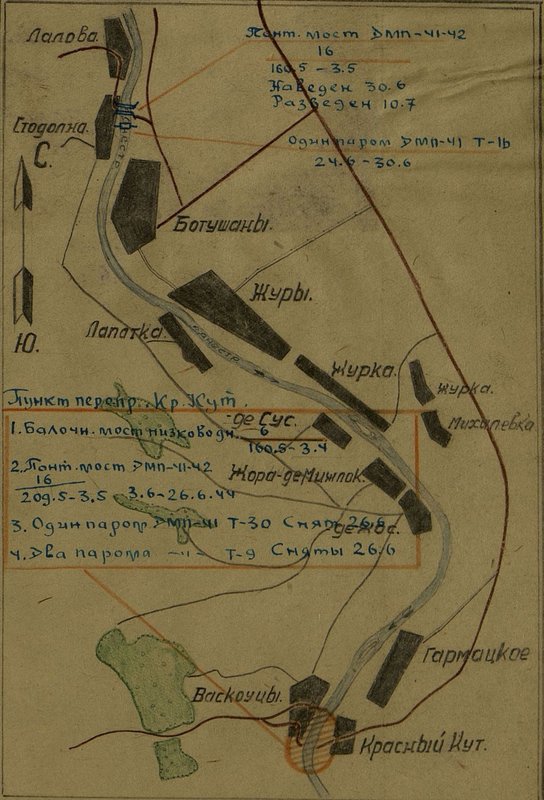 Лалова.
Понт. мост ДМП-41-42
16
160.5 - 3.5
Наведен 30.6
Разведен 10.7
Стодолна.
Один паром ДМП-41 Т-16
24.6 - 30.6
С.
Ботушаны.
Журы.
Лапатка.
Днестр
Ю.
Журка.
Журка.
Михилевка
Пункт перепр. Кр. Кут.
-де Сус.
1. Балочн. мост низководн. 6
160.5 - 3.4
2. Понт. мост ДМП-41-42
16
209.5 - 3.5 3.6 - 26.6.44
Жора-де Мижлок.
3. Один паром ДМП-41 Т-30 Снят 26.6
4. Два парома -"- Т-9 Сняты 26.6
Гармацкое
Васкоуцы.
Красный Кут.